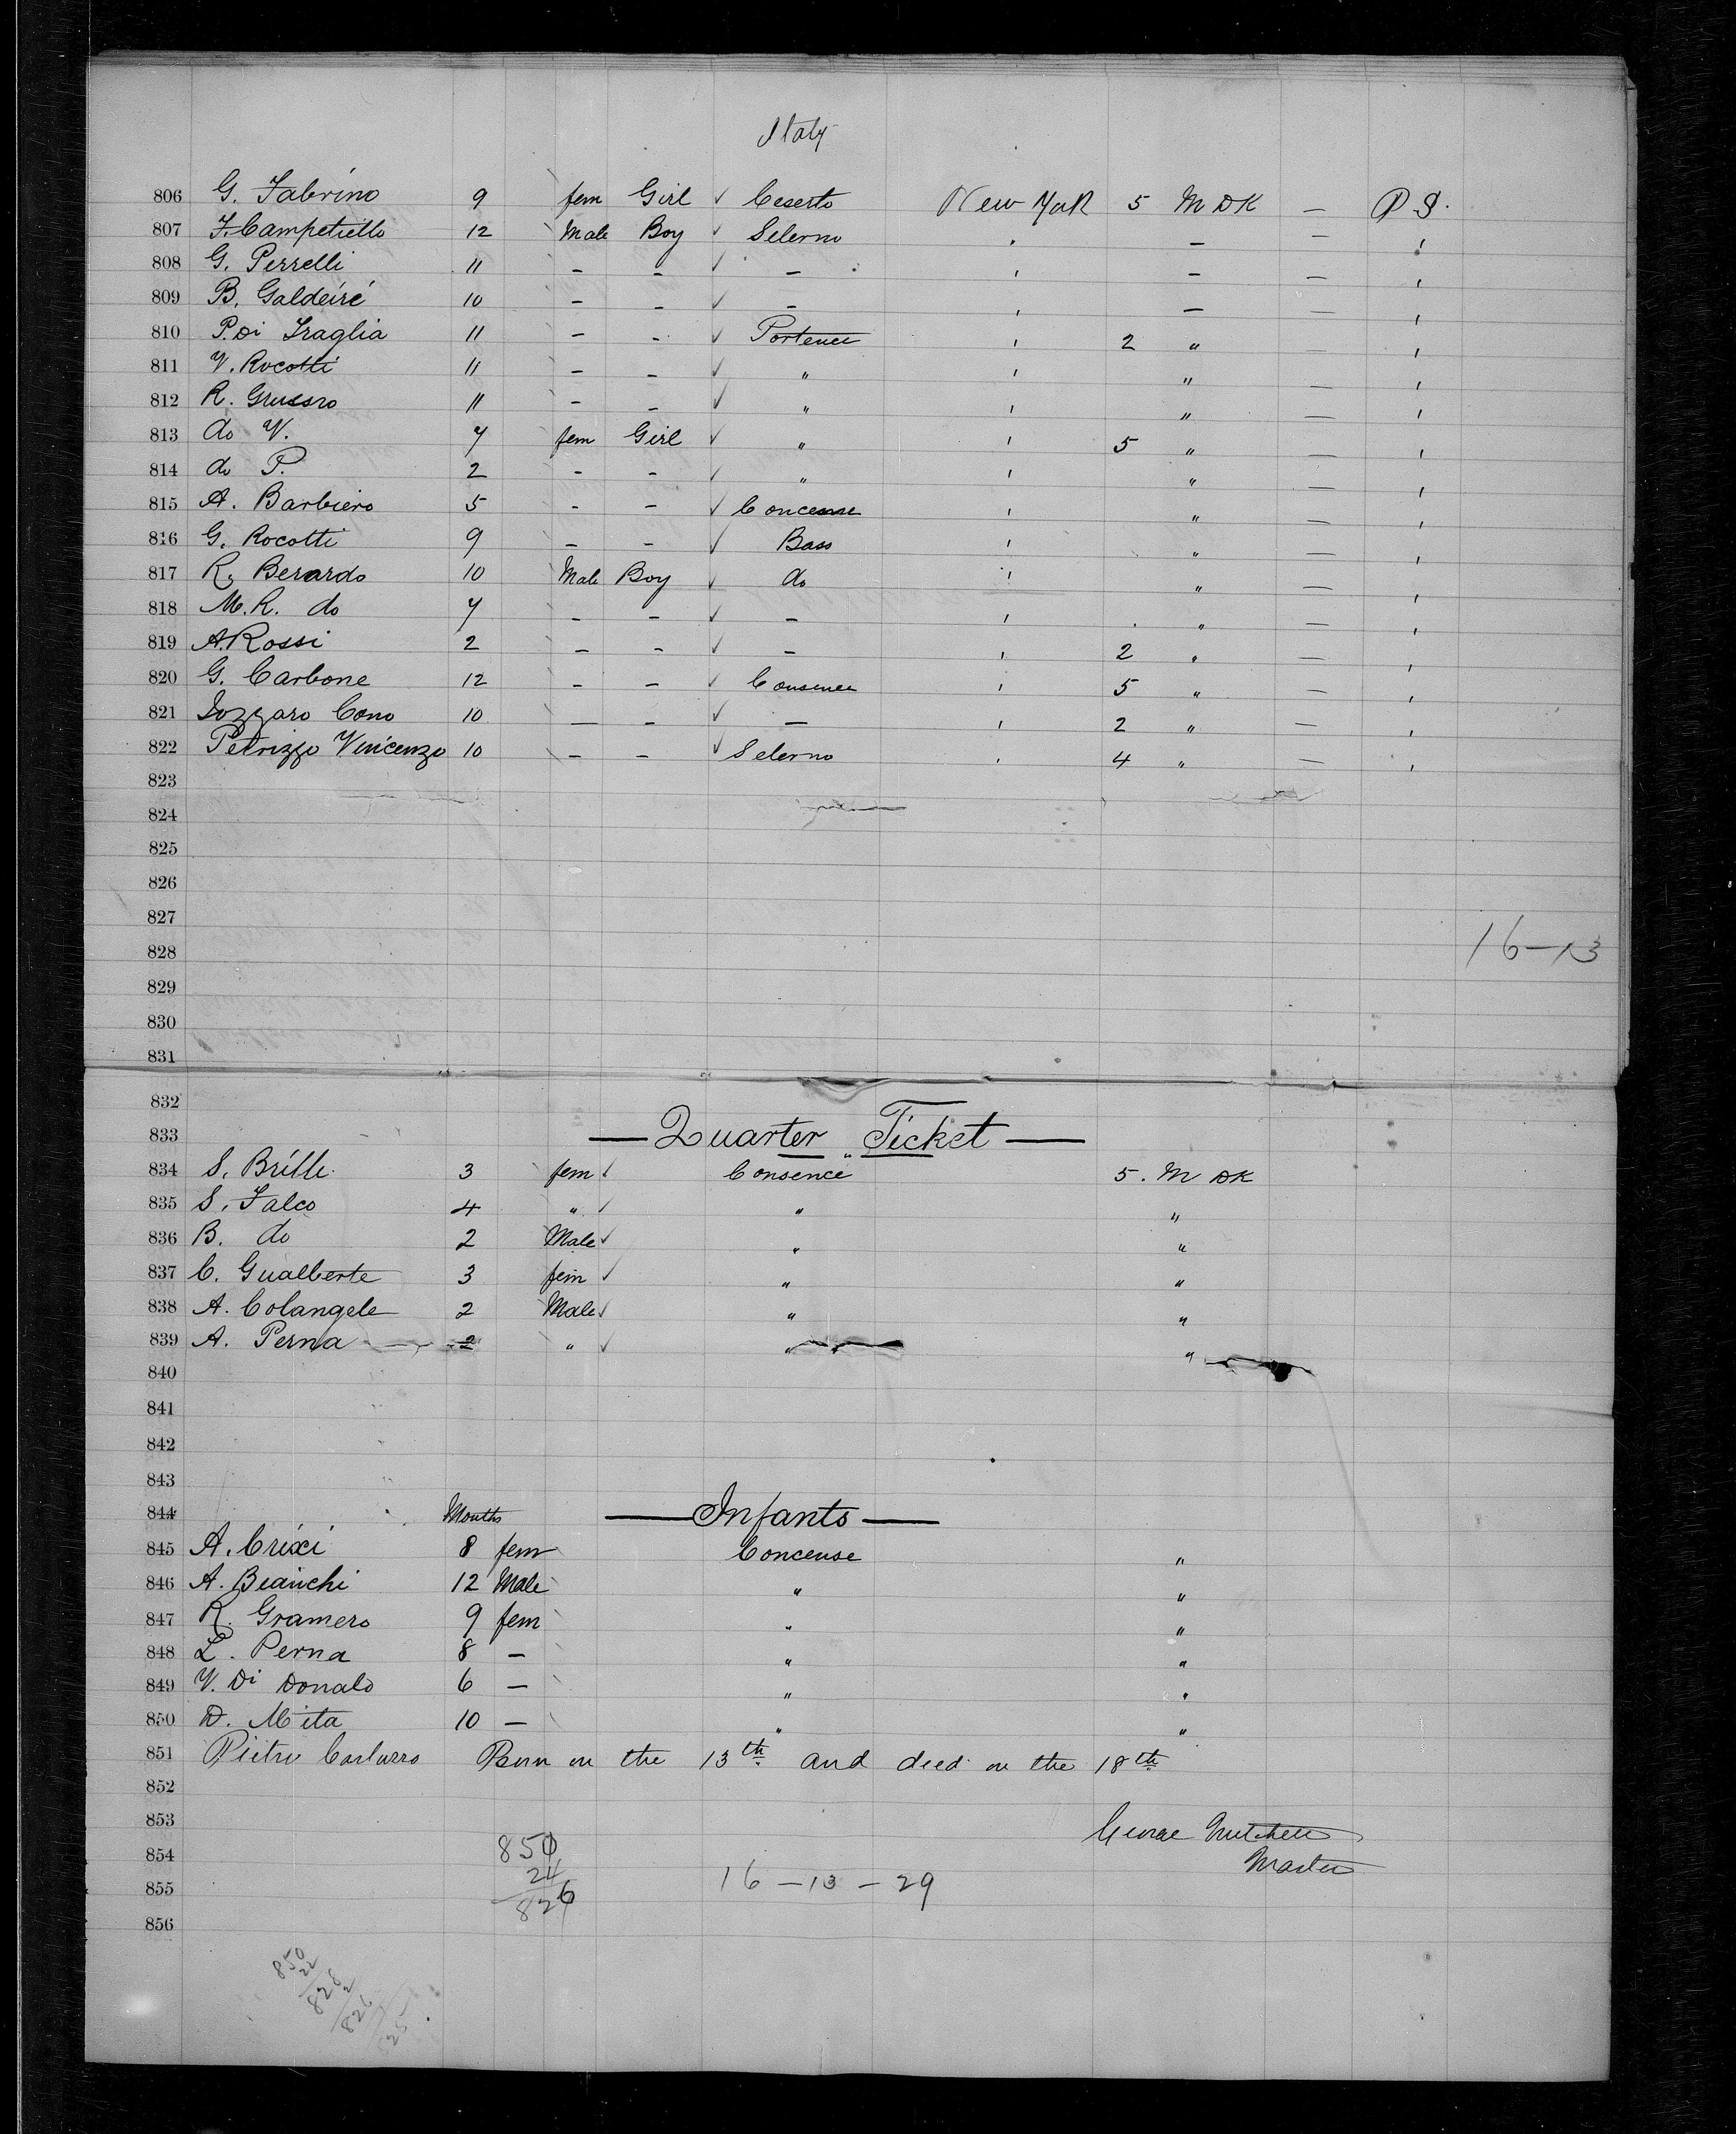 Italy
806 G. Fabrino 9 fem Girl ✓ Ceserto New York 5 M DK — P S.
807 F. Campetiello 12 Male Boy ✓ Selerno " — — "
808 G. Perrelli 11 – – ✓ – " — — "
809 B. Galdeiré 10 – – ✓ – " — — "
810 P. Di Iraglia 11 – – ✓ Portence " 2 " — "
811 V. Rocotti 11 – – ✓ " " " — "
812 R. Grussro 11 – – ✓ " " " — "
813 do V. 7 fem Girl ✓ " " 5 " — "
814 do P. 2 – – ✓ " " " — "
815 A. Barbiero 5 – – ✓ Concense " " — "
816 G. Rocotti 9 – – ✓ Bass " " — "
817 R. Berardo 10 Male Boy ✓ do " " — "
818 M. R. do 7 – – ✓ – " " — "
819 A. Rossi 2 – – ✓ – " 2 " — "
820 G. Carbone 12 – – ✓ Consence " 5 " — "
821 Iozzaro Cono 10 – – ✓ – " 2 " — "
822 Petrizzo Vincenzo 10 – – ✓ Selerno " 4 " — "
823
824
825
826
827
828 16–13
829
830
831
832
833 — Quarter Ticket —
834 S. Brille 3 fem ✓ Consence 5. M DK
835 S. Falco 4 " ✓ " "
836 B. do 2 Male ✓ " "
837 C. Gualberte 3 fem ✓ " "
838 A. Colangele 2 Male ✓ " "
839 A. Perna 2 " ✓ " "
840
841
842
843
844 Months — Infants —
845 A. Crixi 8 fem Concense "
846 A. Bianchi 12 Male " "
847 R. Gramero 9 fem " "
848 L. Perna 8 – " "
849 V. Di Donalo 6 – " "
850 D. Mita 10 – " "
851 Pietro Born on the 13th and died on the 18th
852
853 George Mitchell
854 850 Master
24
855 826 16–13–29
856
850
22
828
2
826